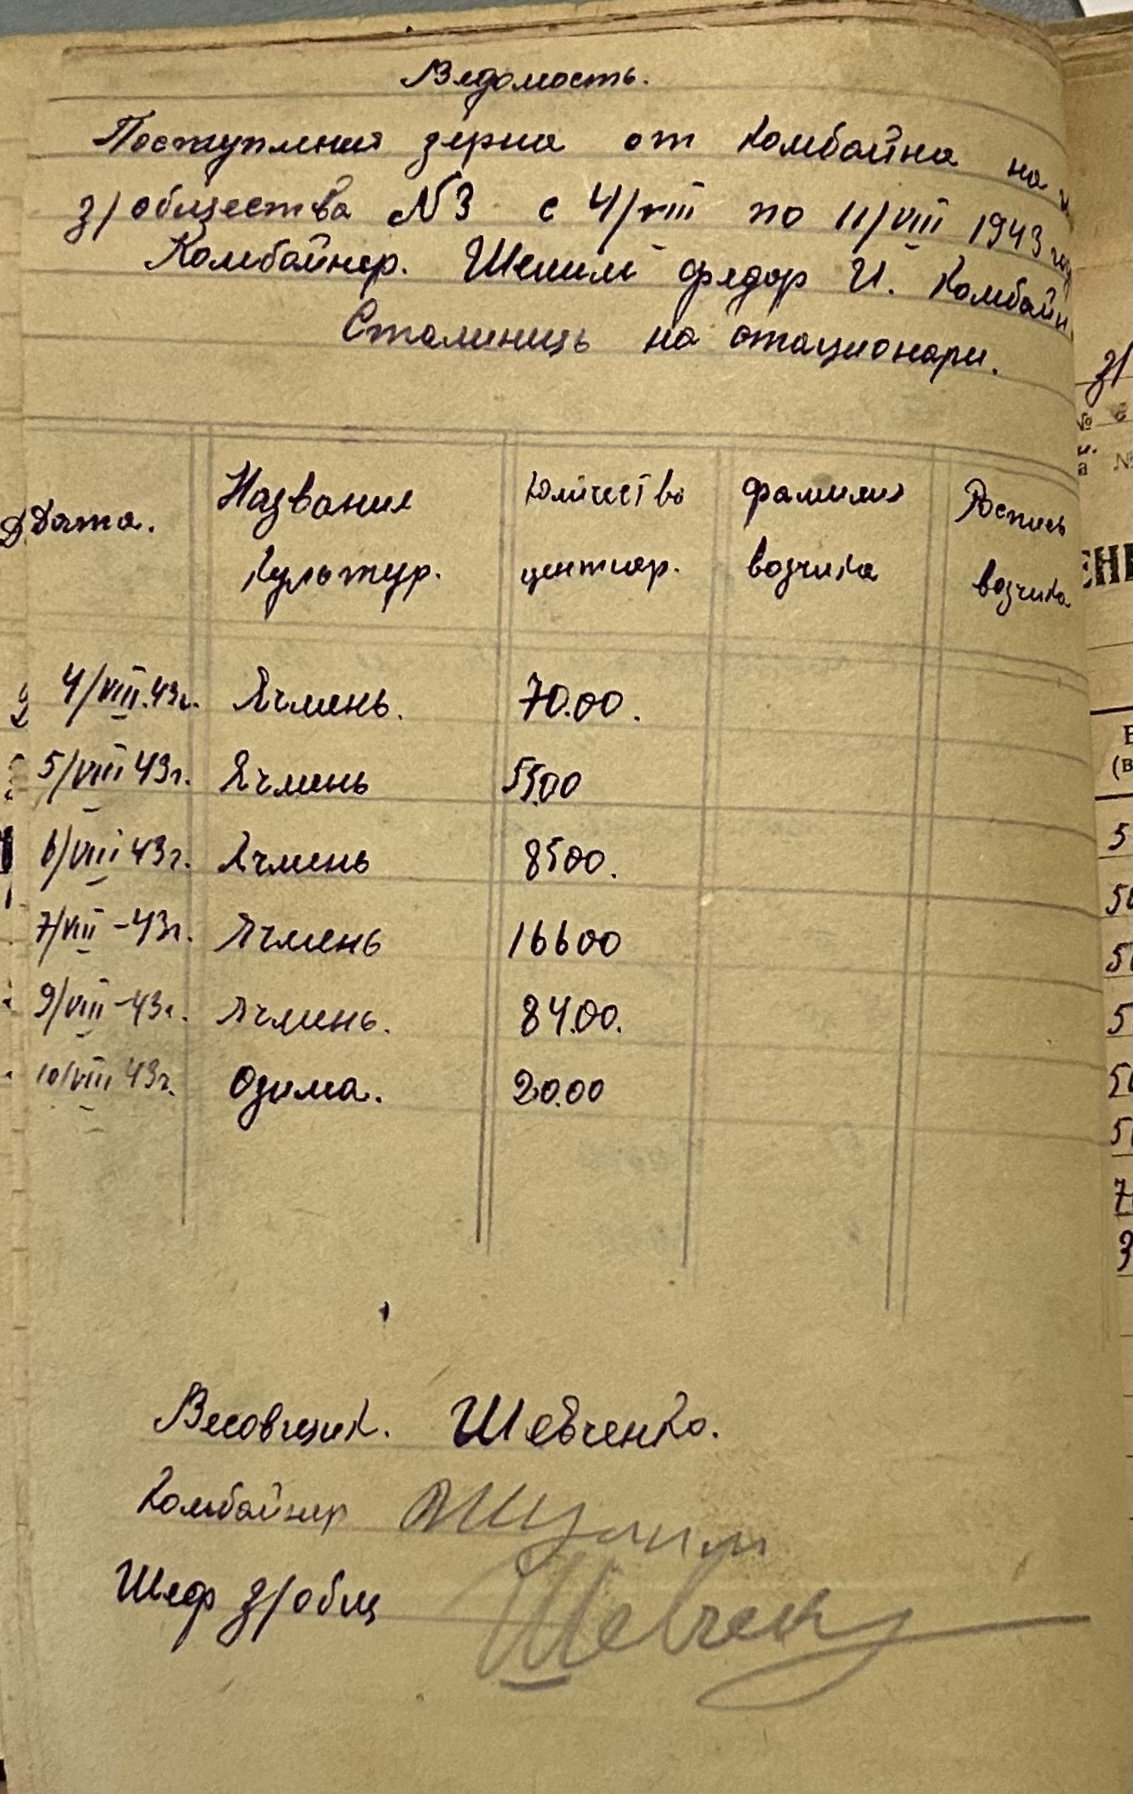 Ведомость.
Поступления зерна от комбайна на
з/общества №3 с 4/VIII по 11/VIII 1943 год
Комбайнер. Федор И. Комбайн
Сталинець на стационари.
Дата. Название культур. Количество центнер. фамилия возчика Роспись возчика
4/VIII.43г. Ячмень. 70.00.
5/VIII 43г. Ячмень 55.00
6/VIII 43г. Ячмень 8500.
7/VIII-43г. Ячмень 16600
9/VIII-43г. Ячмень. 84.00.
10/VIII 43г. Озима. 20.00
Весовщик. Шевченко.
Комбайнер
Шеф з/общ Шевченко
ЕНИ